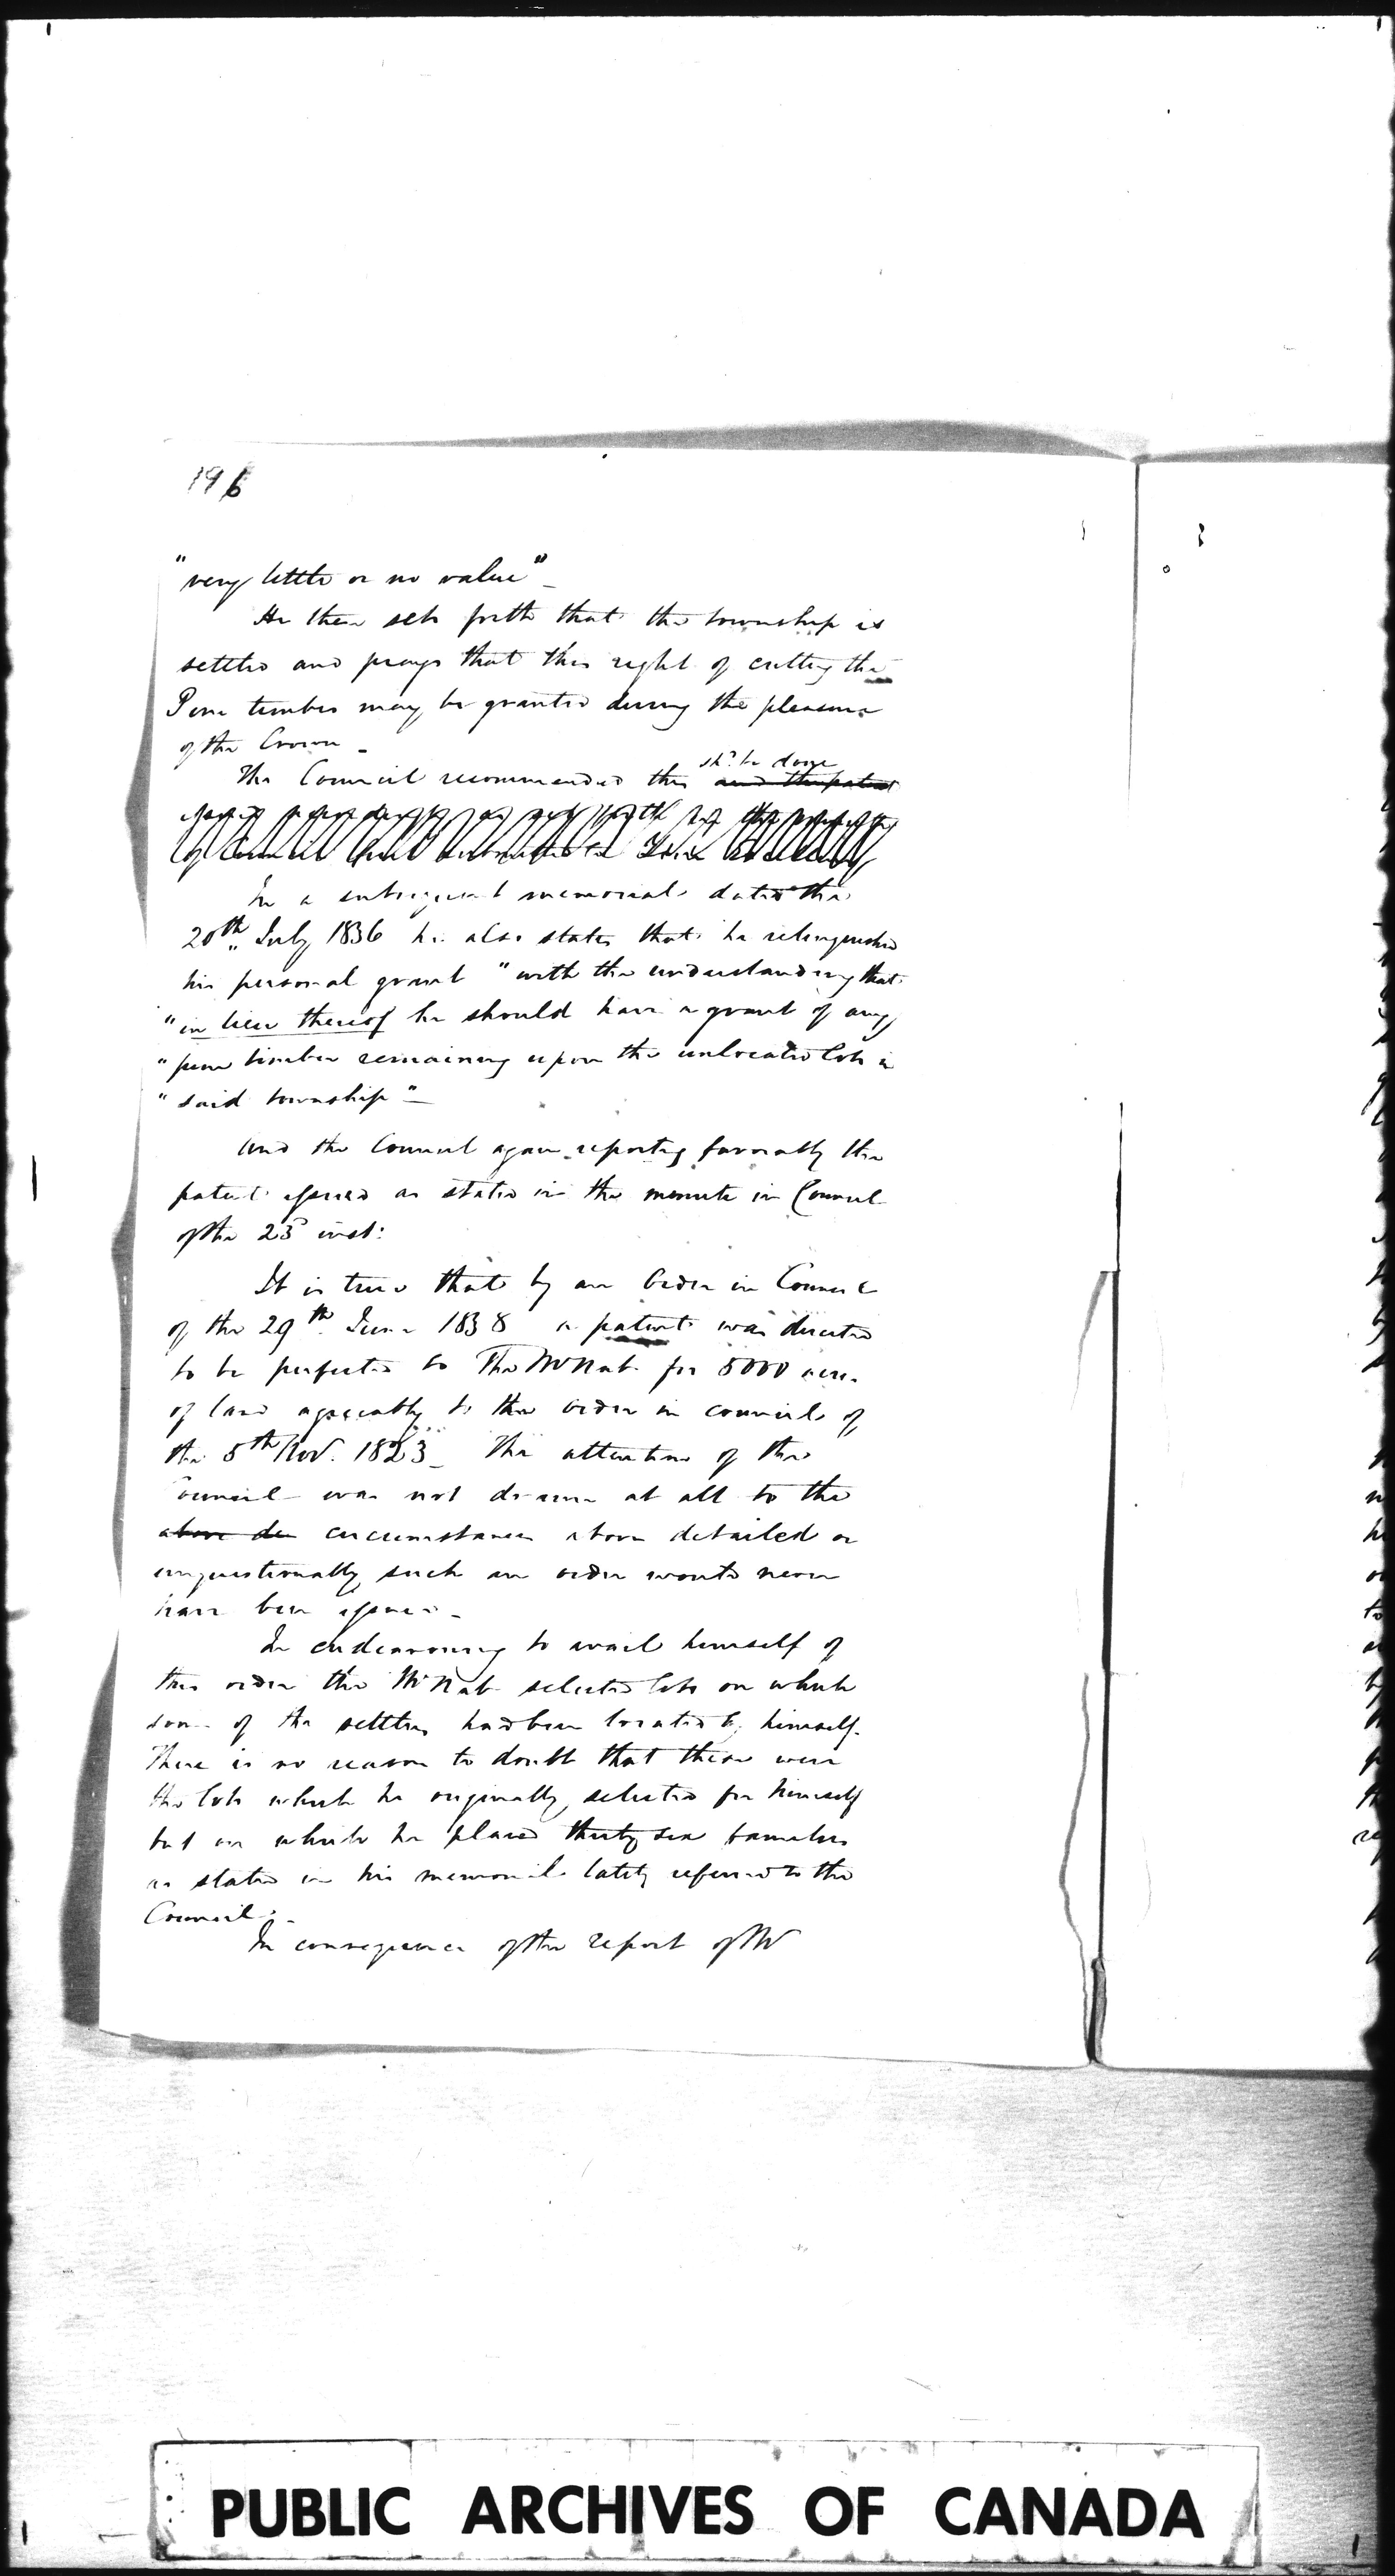 196
"very little or no value" _
He then sets forth that the township is
settled and prays that this right of cutting the
Pine timber may be granted during the pleasure
of the Crown _
shd. be done
The Council recommended this and the patent
In a subsequent memorial dated the
20th July 1836 he also states that he relinquished
his personal grant "with the understanding that
"in lieu thereof he should have a grant of any
"pine timber remaining upon the unlocated lots in
"said township" _
And the Council again reporting favorably the
patent issued as stated in the minute in Council
of the 23d inst:
It is true that by an Order in Council
of the 29th June 1838 a patent was directed
to be perfected to The McNab for 5000 acres
of land agreeably to the order in council of
the 5th Nov. 1823 _ The attention of the
Council was not drawn at all to the
above de circumstances above detailed or
unquestionably such an order would never
have been issued _
In endeavouring to avail himself of
this order the McNab selected lots on which
some of the settlers had been located by himself.
There is no reason to doubt that these were
the lots which he originally selected for himself
but on which he placed thirty six families
as stated in his memorial lately referred to the
Council. _
In consequence of the report of Mr
PUBLIC ARCHIVES OF CANADA